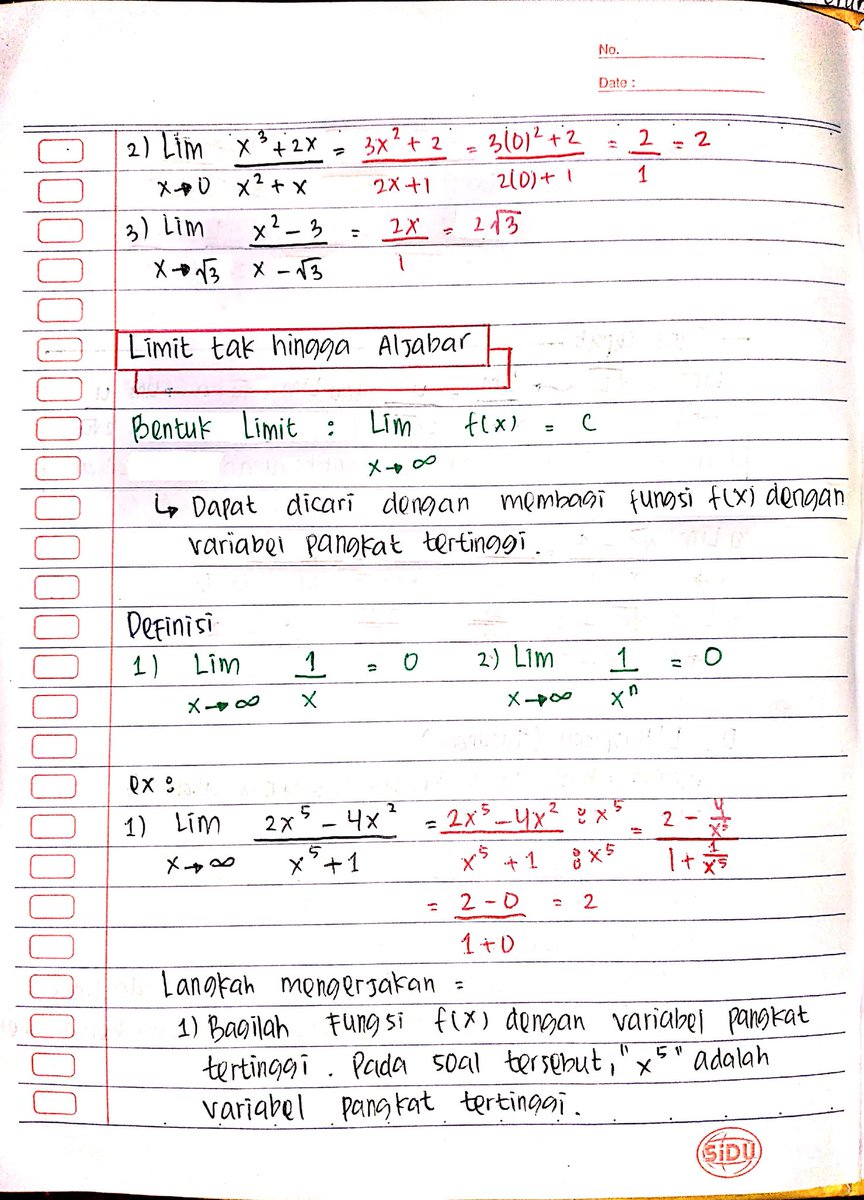 No.
Date :
2) Lim x³ + 2x = 3x² + 2 = 3(0)² + 2 = 2 = 2
x→0 x² + x 2x+1 2(0) + 1 1
3) Lim x² - 3 = 2x = 2√3
x→√3 x - √3 1
Limit tak hingga Aljabar
Bentuk Limit : Lim f(x) = C
x→∞
↳ Dapat dicari dengan membagi fungsi f(x) dengan
variabel pangkat tertinggi.
Definisi
1) Lim 1 = 0 2) Lim 1 = 0
x→∞ x x→∞ xⁿ
ex :
1) Lim 2x⁵ - 4x² = 2x⁵ - 4x² : x⁵ = 2 - 4/x⁵
x→∞ x⁵ + 1 x⁵ + 1 : x⁵ 1 + 1/x⁵
= 2 - 0 = 2
1 + 0
Langkah mengerjakan =
1) Bagilah fungsi f(x) dengan variabel pangkat
tertinggi. Pada soal tersebut, "x⁵" adalah
variabel pangkat tertinggi.
SiDU